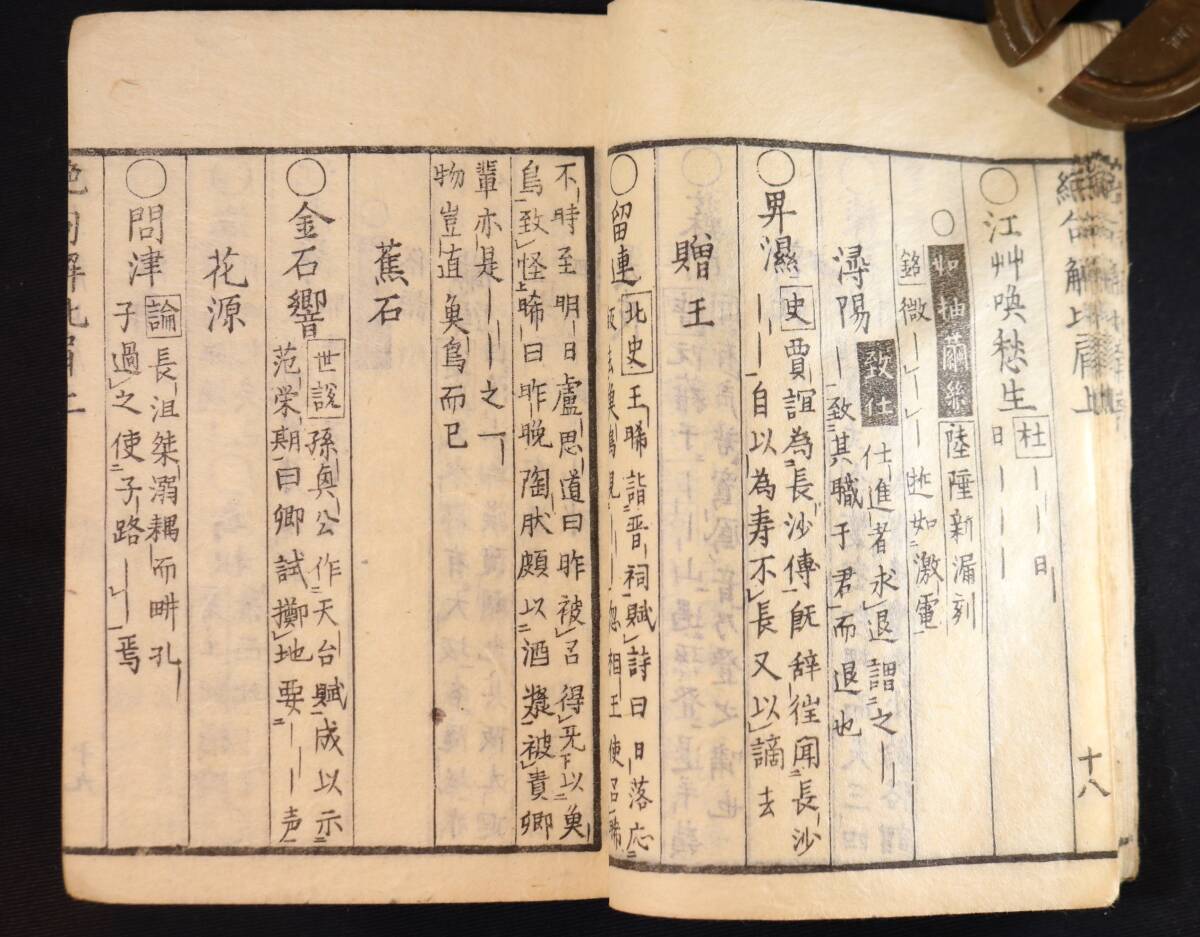 十八
○江艸喚愁生 杜｜｜日
日｜｜｜
○如抽繭糸 陸陲新漏刻
銘微｜｜｜逝如激電
潯陽 致仕 仕進者求退謂之｜
｜致其職于君而退也
○卑濕 史 賈誼為長沙傅既辞往聞長沙
｜｜自以為寿不長又以謫去
贈王
○留連 北史 王晞詣晋祠賦詩曰日落応
相王使召晞
不時至明日盧思道曰昨被召得无以魚
鳥致怪晞曰昨晩陶肰頗以酒漿被責卿
輩亦是｜｜之一
物豈直魚鳥而已
蕉石
○金石響 世説 孫興公作天台賦成以示
范栄期曰卿試擲地要｜｜声
花源
○問津 論 長沮桀溺耦而畊孔
子過之使子路｜｜焉